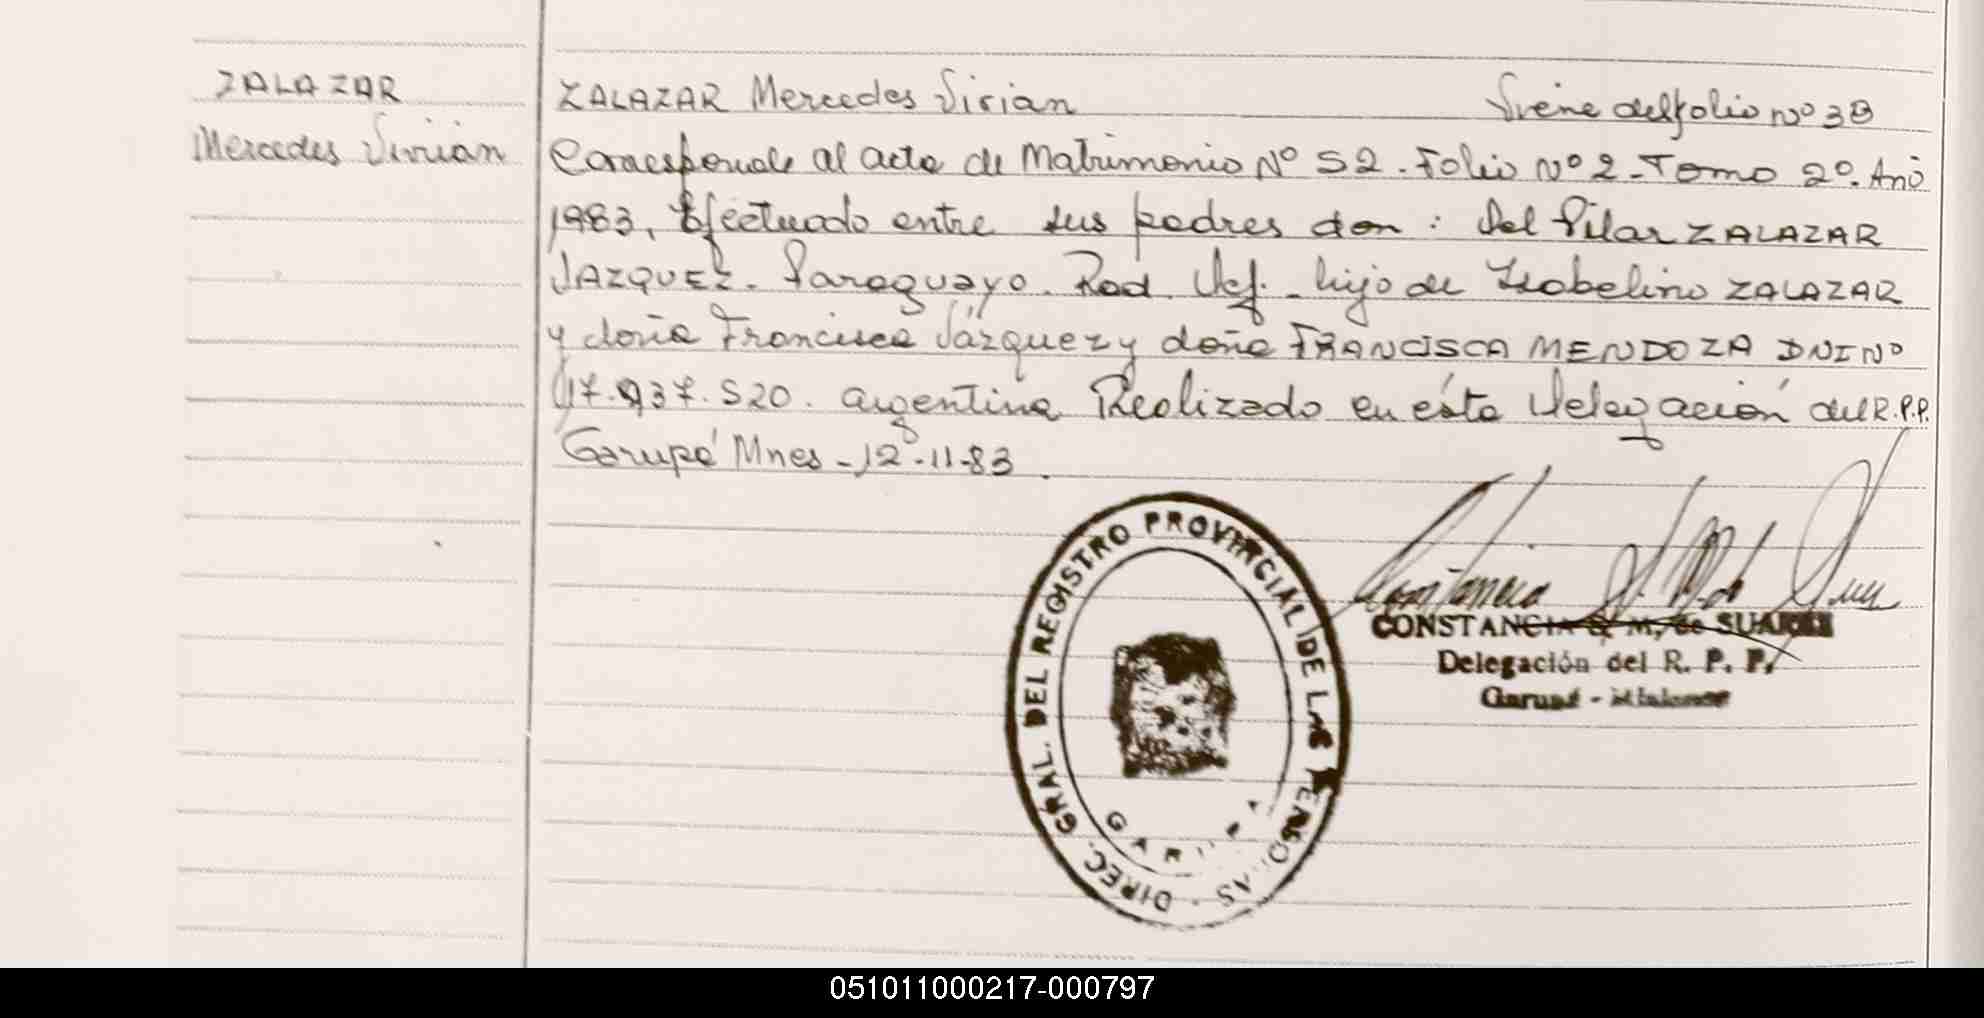 ZALAZAR
Mercedes Virian
ZALAZAR Mercedes Virian
Viene del folio nº 38
Corresponde al acta de Matrimonio Nº 52. Folio Nº 2 - Tomo 2º. Año
1983. Efectuado entre sus padres don : Del Pilar ZALAZAR
VAZQUEZ - Paraguayo. Rad. Def. - hijo de Isabelino ZALAZAR
y doña Francisca Vázquez y doña FRANCISCA MENDOZA DNI Nº
17.937.520. argentina Realizado en ésta Delegación del R.P.P.
Garupá Mnes - 12-11-83.
DIREC. GRAL. DEL REGISTRO PROVINCIAL DE LAS PERSONAS
GARUPA
CONSTANCIA S. M. de SUAREZ
Delegación del R. P. P.
Garupá - Misiones
051011000217-000797